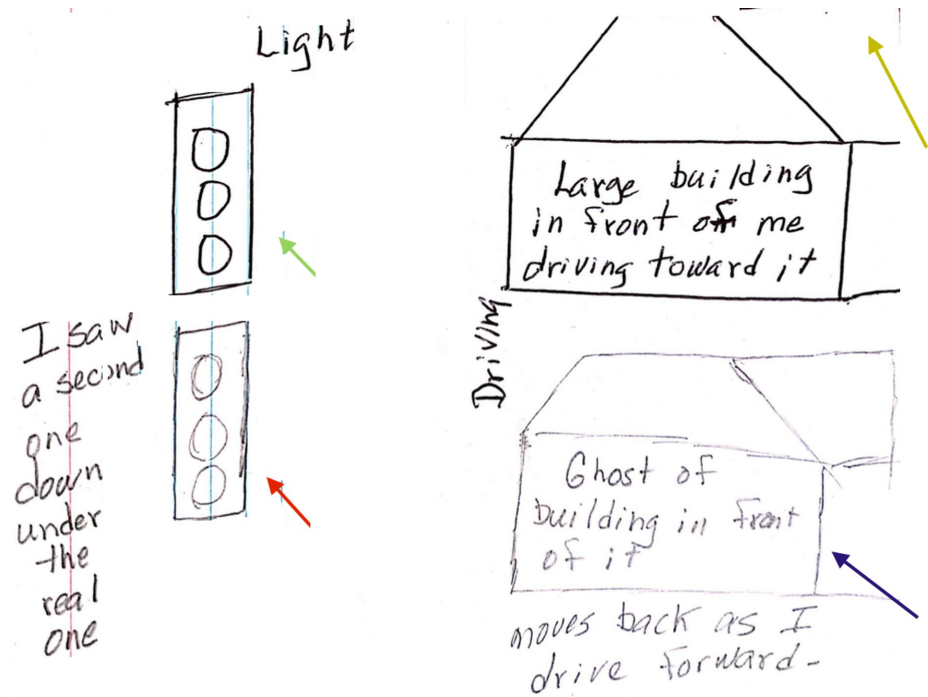 Light
I saw
a second
one
down
under
the
real
one
Large building
in front of me
driving toward it
Driving
Ghost of
building in front
of it
moves back as I
drive forward-